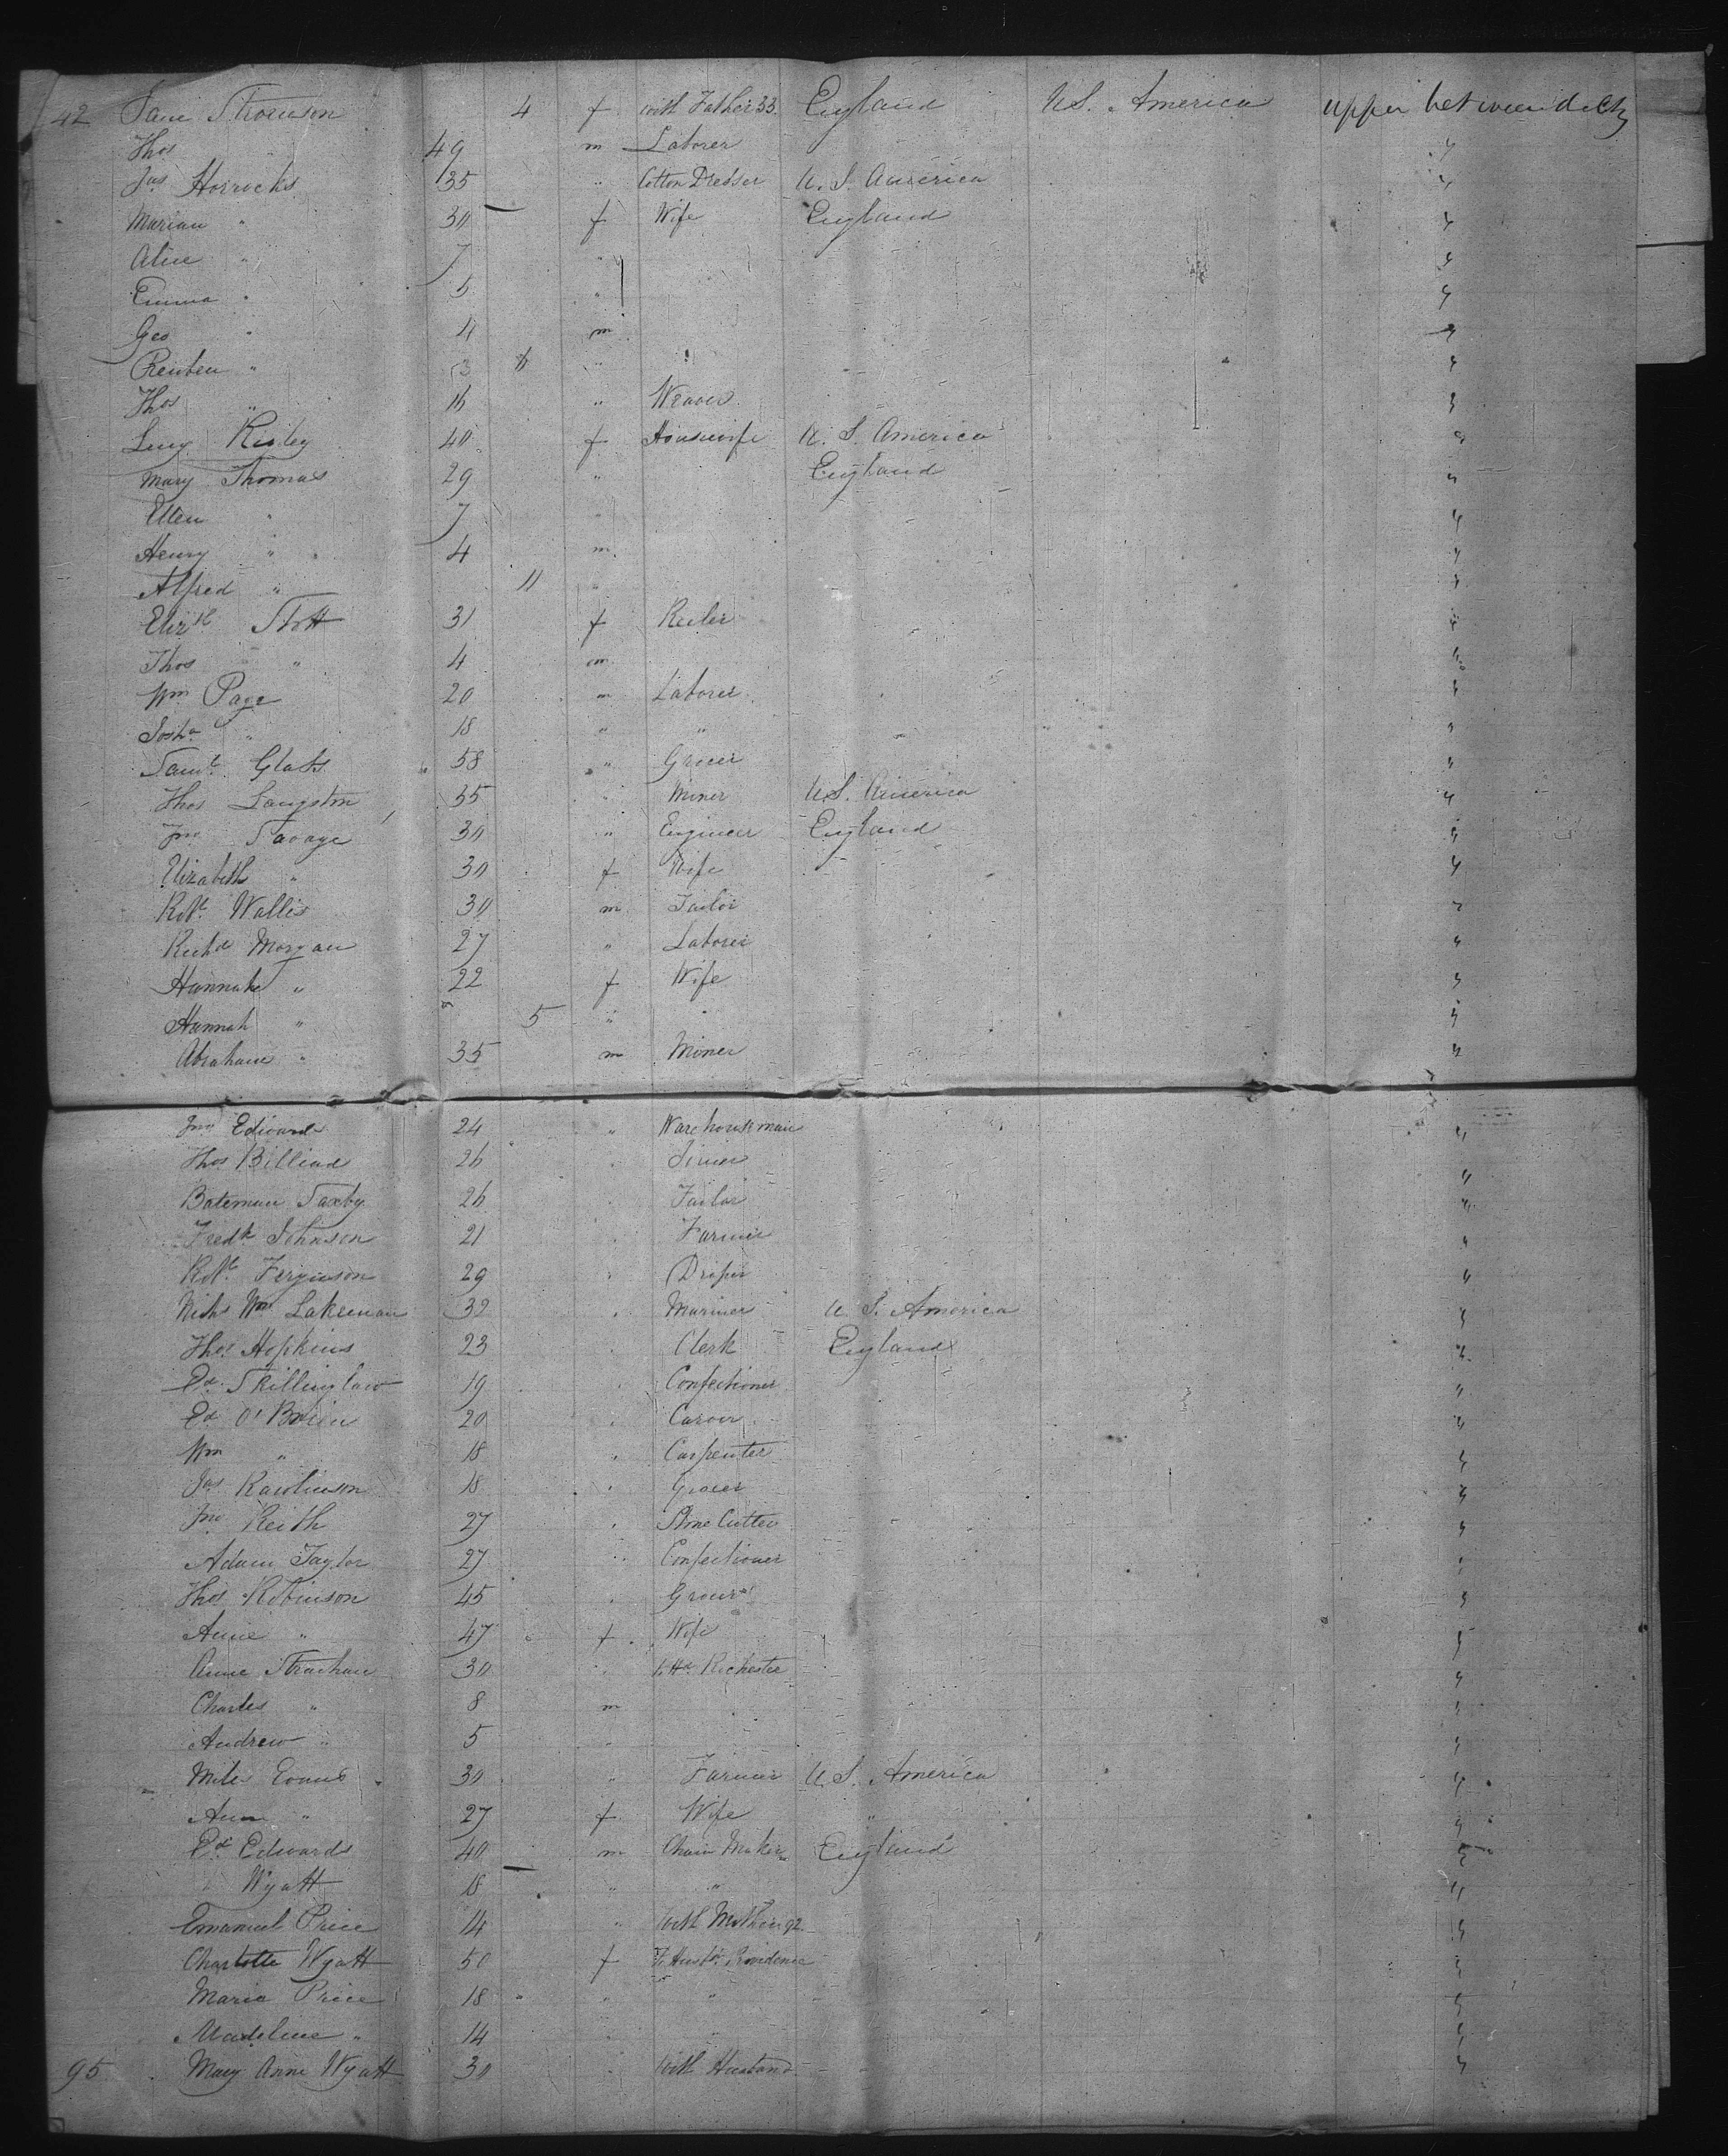 42 Jane Thomson 4 f with Father 33. England U.S. America upper between decks
Thos " 49 m Laborer "
Jas Horrocks 35 " Cotton Dresser U.S. America "
Marian " 30 f Wife England "
Alice " 7 " "
Emma " 5 " "
Geo " 4 m "
Reuben " 3 " "
Thos " 16 " Weaver "
Lucy Risley 40 f Housewife U.S. America "
Mary Thomas 29 " England "
Ellen " 7 " "
Henry " 4 m "
Alfred " 11 " "
Elizth Stott 31 f Reeler "
Thos " 4 m "
Wm Page 20 m Laborer "
Josha " 18 " " "
Saml Glass 58 " Grocer "
Thos Langston 35 " Miner U.S. America "
Jno Savage 30 " Engineer England "
Elizabeth " 30 f Wife "
Robt Wallis 30 m Tailor "
Richd Morgan 27 " Laborer "
Hannah " 22 f Wife "
Hannah " 5 " "
Abraham " 35 m Miner "
Jno Edwards 24 " Warehouseman "
Thos 26 " "
Bateman Saxby 26 " Tailor "
Fredk Johnson 21 " Farmer "
Robt Ferguson 29 " Draper "
Nichs Wm Lakeman 32 " Mariner U.S. America "
Thos Hopkins 23 " Clerk England "
Ed. Skillinglaw 19 " Confectioner "
Ed O'Brien 20 " Carver "
Wm " 18 " Carpenter "
Jas Rawlinson 18 " Grocer "
Jno Keith 27 " Stone Cutter "
Adam Taylor 27 " Confectioner "
Thos Robinson 45 " Grocer "
Anne " 47 f Wife "
Anne Strachan 30 " to Hd Rochester "
Charles " 8 m "
Andrew " 5 " "
Miles Evans 30 " Farmer U.S. America "
Ann " 27 f Wife " "
Ed Edwards 40 m Chain Maker England "
Wyatt 18 " " "
Emanuel Price 14 " with Mother 92 "
Charlotte Wyatt 50 f To Husbd Providence "
Maria Price 18 " " "
Madeline " 14 " " "
95 Mary Anne Wyatt 30 " with Husband "